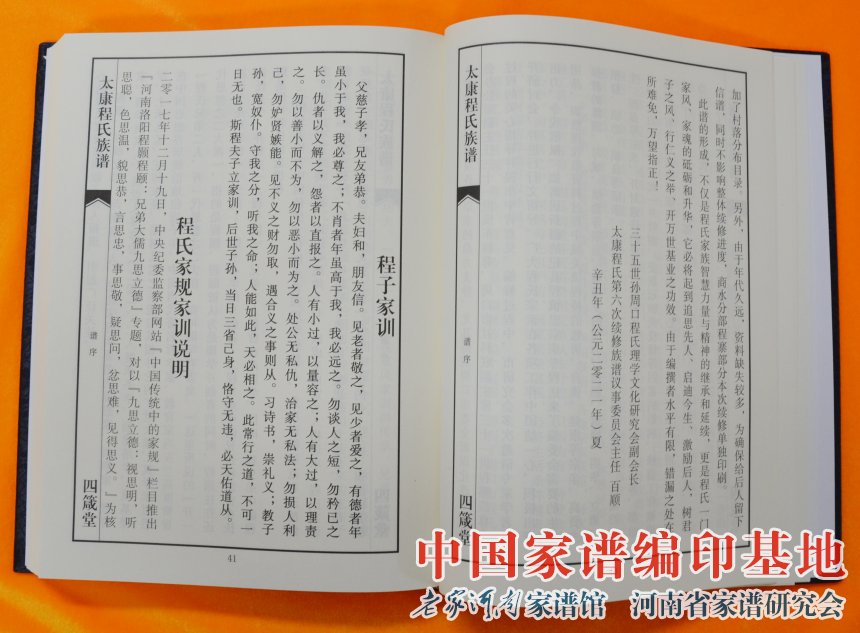 加了村落分布目录。另外，由于年代久远，资料缺失较多，为确保给后人留下
信谱，同时不影响整体续修进度，商水分部程寨部分本次续修单独印刷。
此谱的形成，不仅是程氏家族智慧力量与精神的继承和延续，更是程氏一门
家风、家魂的砥砺和升华，它必将起到追思先人、启迪今生、激励后人，树君
子之风，行仁义之举、开万世基业之功效。由于编撰者水平有限，错漏之处在
所难免，万望指正！
三十五世孙周口程氏理学文化研究会副会长
太康程氏第六次续修族谱议事委员会主任 百顺
辛丑年（公元二零二一年）夏
太康程氏族谱
谱序
四箴堂
程子家训
父慈子孝，兄友弟恭。夫妇和，朋友信。见老者敬之，见少者爱之，有德者年
虽小于我，我必尊之；不肖者年虽高于我，我必远之。勿谈人之短，勿矜己之
长。仇者以义解之，怨者以直报之。人有小过，以量容之；人有大过，以理责
之。勿以善小而不为，勿以恶小而为之。处公无私仇，治家无私法；勿损人利
己，勿妒贤嫉能。见不义之财勿取，遇合义之事则从。习诗书，崇礼义；教子
孙，宽奴仆。守我之分，听我之命；人能如此，天必相之。此常行之道，不可一
日无也。斯程夫子立家训，后世子孙，当日三省己身，恪守无违，必天佑道从。
程氏家规家训说明
二零一七年十二月十九日，中央纪委监察部网站『中国传统中的家规』栏目推出
『河南洛阳程颢程颐：兄弟大儒九思立德』专题，对以『九思立德：视思明，听
思聪，色思温，貌思恭，言思忠，事思敬，疑思问，忿思难，见得思义。』为核
太康程氏族谱
谱序
四箴堂
41
中国家谱编印基地
老家河南家谱馆 河南省家谱研究会